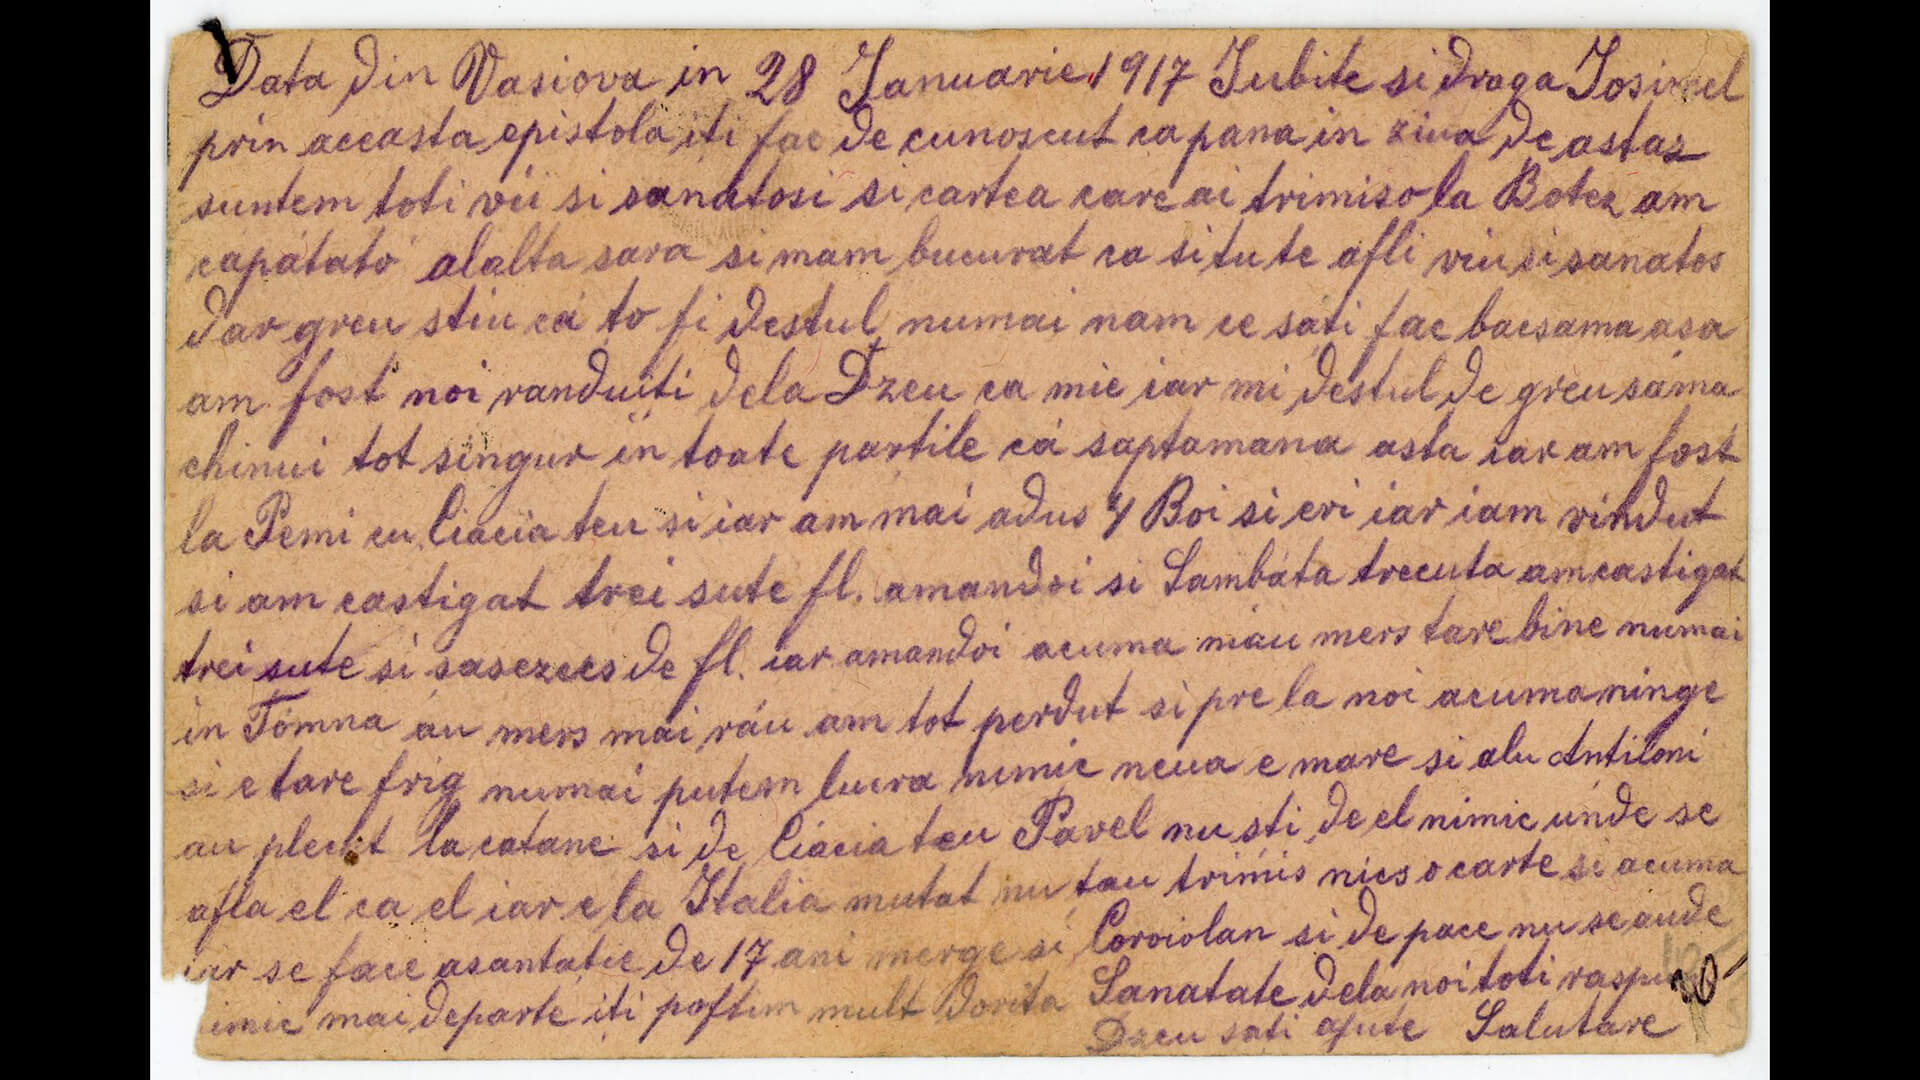 Data din Vasiova in 28 Januarie 1917 Iubite si draga Iosimel
prin aceasta epistola iti fac de cunoscut ca pana in ziua de astaz
suntem toti vii si sanatosi si cartea care ai trimiso la Botez am
capátató alalta sara si mam bucurat ca si tu te afli viu si sanatos
dar greu stiu cá to fi destul numai nam ce sáti fac bacsama asa
am fost noi randuiti dela Dzeu ca mie iar mi destul de greu sáma
chinui tot singur in toate partile cá saptamana asta iar am fost
la Pemi cu Ciacia teu si iar am mai adus 4 Boi si eri iar iam vindut
si am castigat trei sute fl. amandoi si Sambáta trecuta am castigat
trei sute si sasezecs de fl. iar amandoi acuma niau mers tare bine numai
in Tómna áu mers mai ráu am tot perdut si pre la noi acuma ninge
si e tare frig numai putem lucra nimic neua e mare si alu Antiloni
au plecat la catane si de Ciacia teu Pavel nu sti de el nimic unde se
afla el ca el iar e la Italia mutat nu tau trimis nics o carte si acuma
iar se face asantatie de 17 ani merge si Coroiolan si de pace nu se aude
imic mai departe iti poftim mult Dorita Sanatate dela noi toti
Dzeu sati ajute Salutare
10